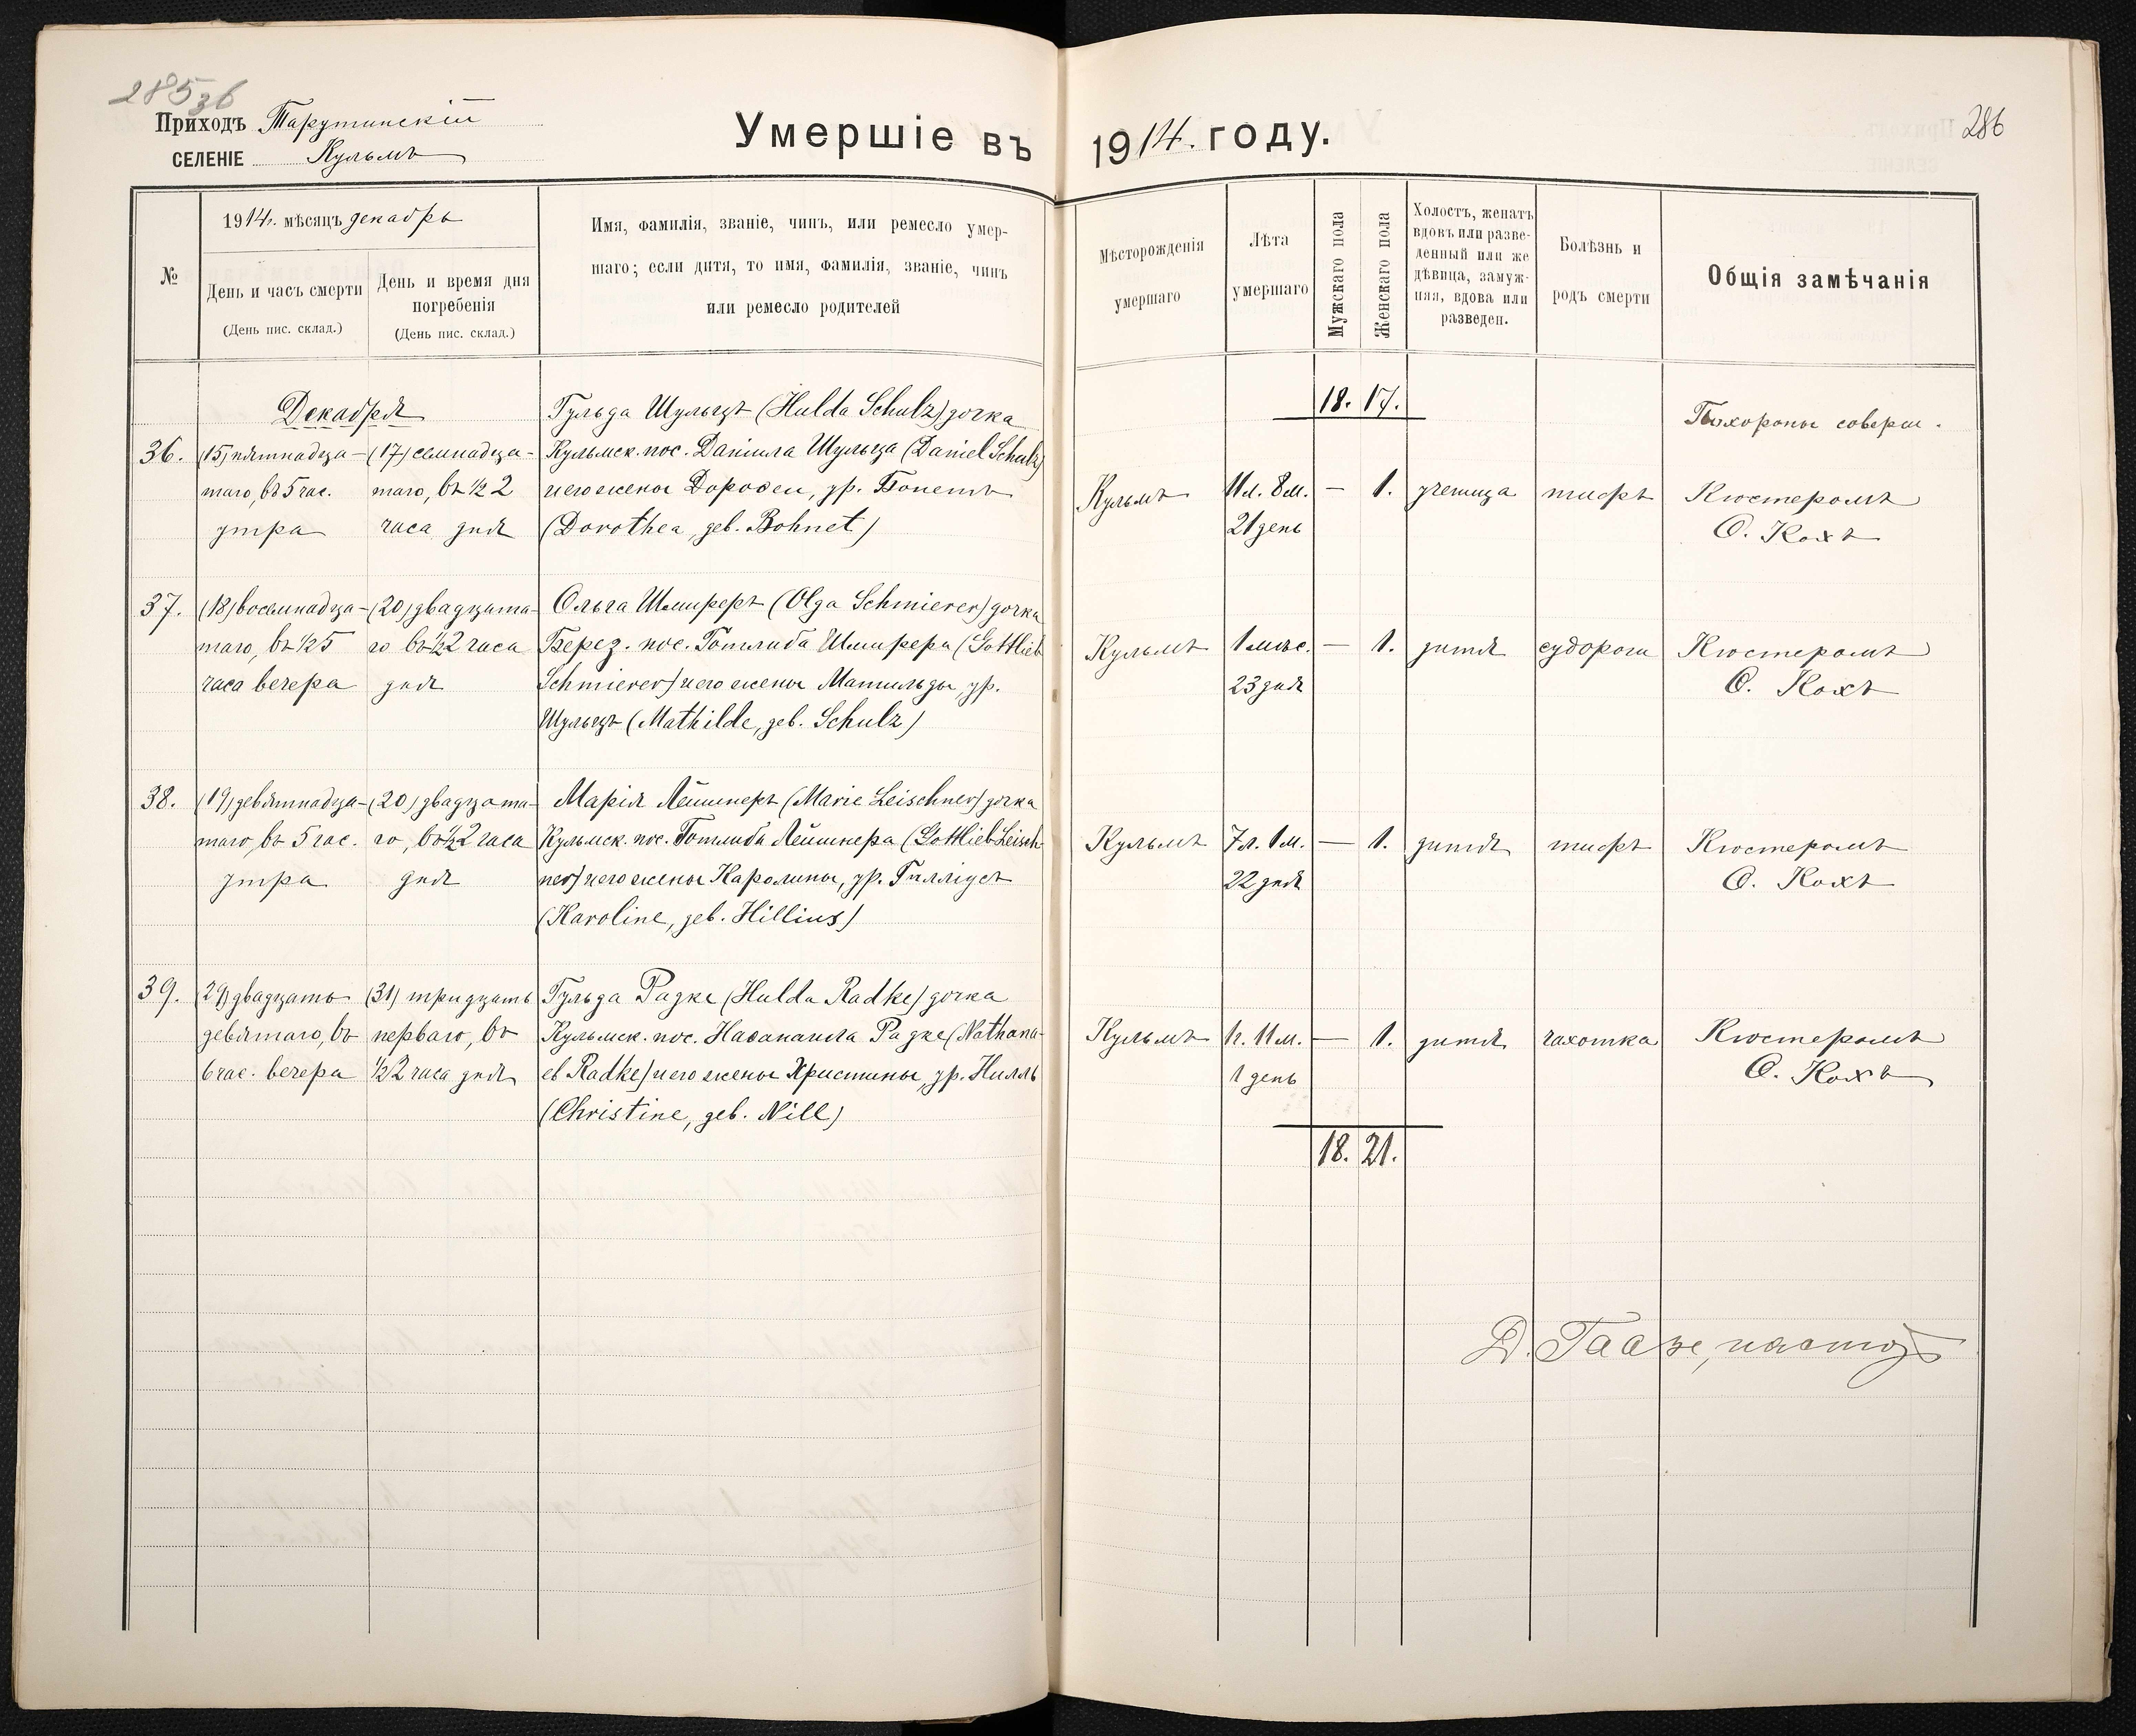 285 зб
Приходъ Тарутинскій
СЕЛЕНІЕ Кульмъ
Умершіе въ 1914. году.
286
№
1914г. мѣсяцъ декабрь
День и часъ смерти
(День пис. склад.)
День и время дня
погребенія
(День пис. склад.)
Имя, фамилія, званіе, чинъ, или ремесло умер-
шаго; если дитя, то имя, фамилія, званіе, чинъ
или ремесло родителей
Мѣсторожденія
умершаго
Лѣта
умершаго
Мужскаго пола
Женскаго пола
Холостъ, женатъ
вдовъ или разве-
денный или же
дѣвица, замуж-
няя, вдова или
разведен.
Болѣзнь и
родъ смерти
Общія замѣчанія
Декабря
18. 17.
Похороны соверш.
36.
(15) пятнадца-
таго, въ 5 час.
утра
(17) семнадца-
таго, въ ½ 2
часа дня
Гульда Шульцъ (Hulda Schulz) дочка
Кульмск. пос. Даніила Шульца (Daniel Schulz)
и его жены Доротеи, ур. Бонетъ
(Dorothea, geb. Bohnet)
Кульмъ
11 л. 8 м.
21 день
— 1.
ученица
тифъ
Кюстеромъ
О. Кохъ
37.
(18) восемнадца-
таго, въ ½ 5
часа вечера
(20) двадцата-
го въ ½ 2 часа
дня
Ольга Шмиреръ (Olga Schmierer) дочка
Берез. пос. Готлиба Шмирера (Gottlieb
Schmierer) и его жены Матильды, ур.
Шульцъ (Mathilde, geb. Schulz)
Кульмъ
1 мѣс.
23 дня
— 1.
дитя
судороги
Кюстеромъ
О. Кохъ
38.
(19) девятнадца-
таго, въ 5 час.
утра
(20) двадцата-
го, въ ½ 2 часа
дня
Марія Лейшнеръ (Marie Leischner) дочка
Кульмск. пос. Готлиба Лейшнера (Gottlieb Leisch-
ner) и его жены Каролины, ур. Гилліусъ
(Karoline, geb. Hillius)
Кульмъ
7 л. 1 м.
22 дня
— 1.
дитя
тифъ
Кюстеромъ
О. Кохъ
39.
(29) двадцать
девятаго, въ
6 час. вечера
(31) тридцать
перваго, въ
½ 2 часа дня
Гульда Радке (Hulda Radke) дочка
Кульмск. пос. Наѳанаила Радке (Nathana-
el Radke) и его жены Христины, ур. Нилль
(Christine, geb. Nill)
Кульмъ
1 г. 11 м.
1 день
— 1.
дитя
чахотка
Кюстеромъ
О. Кохъ
18. 21.
Д. Гаазе, пастор